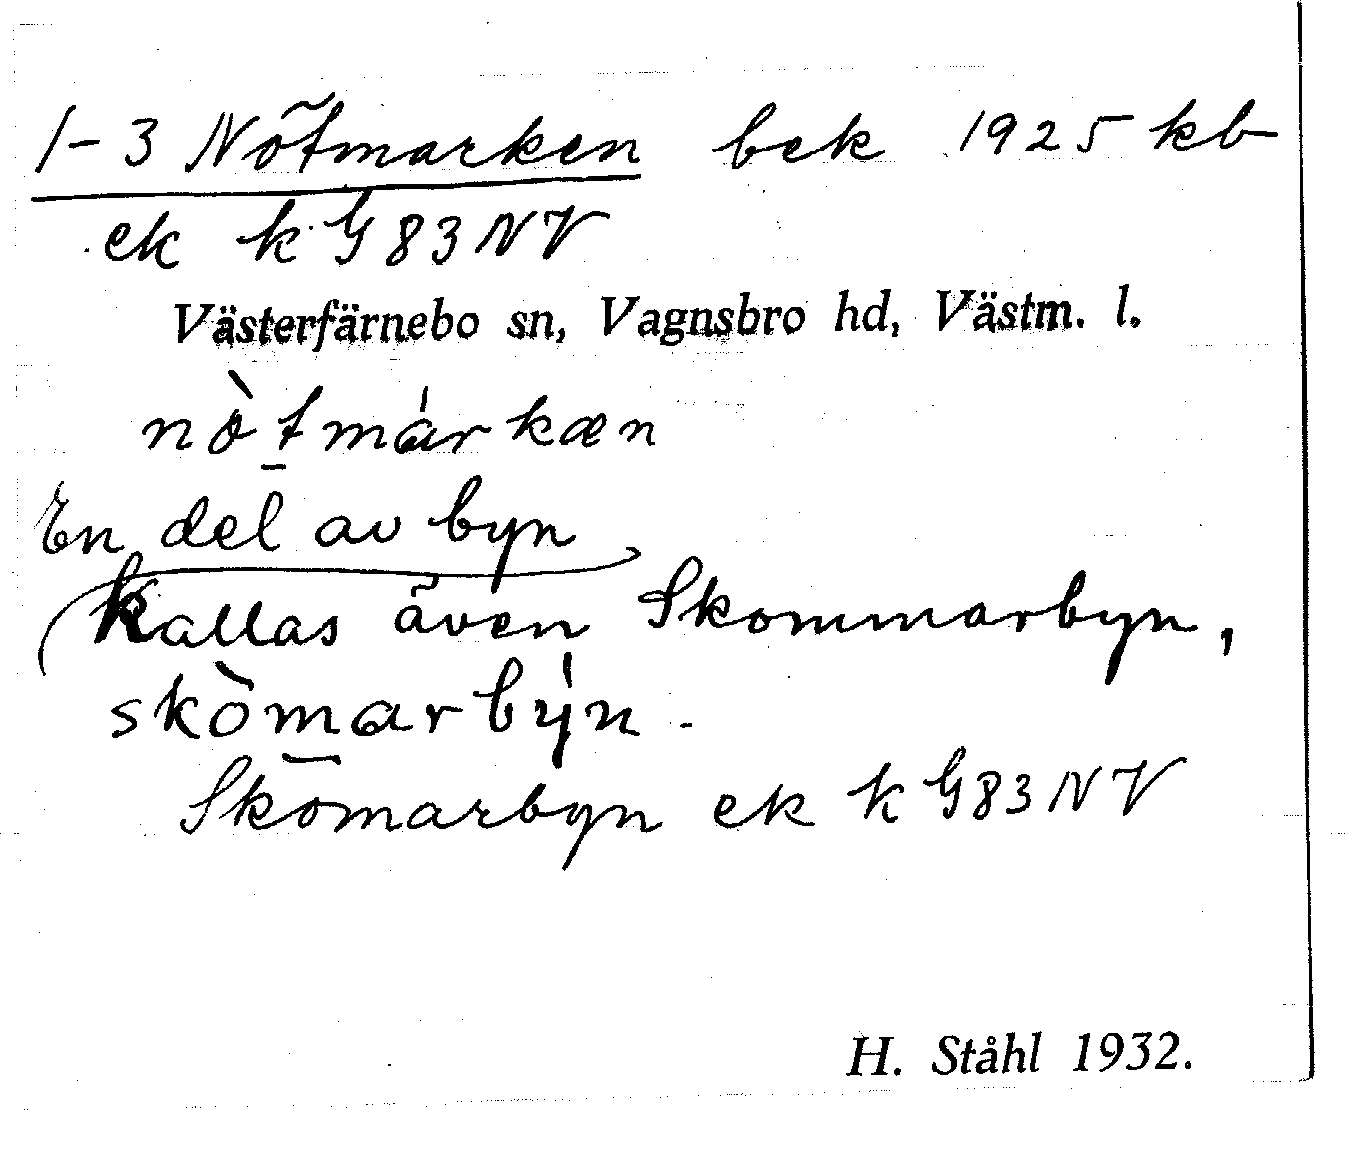 1-3 Nötmarken bek 1925 kb
ek k G83NV
Västerfärnebo sn, Vagnsbro hd, Västm. l.
nòt̲márkæn
En del av byn
kallas även Skommarbyn,
skòmarbýn -
Skömarbyn ek k G83NV
H. Ståhl 1932.